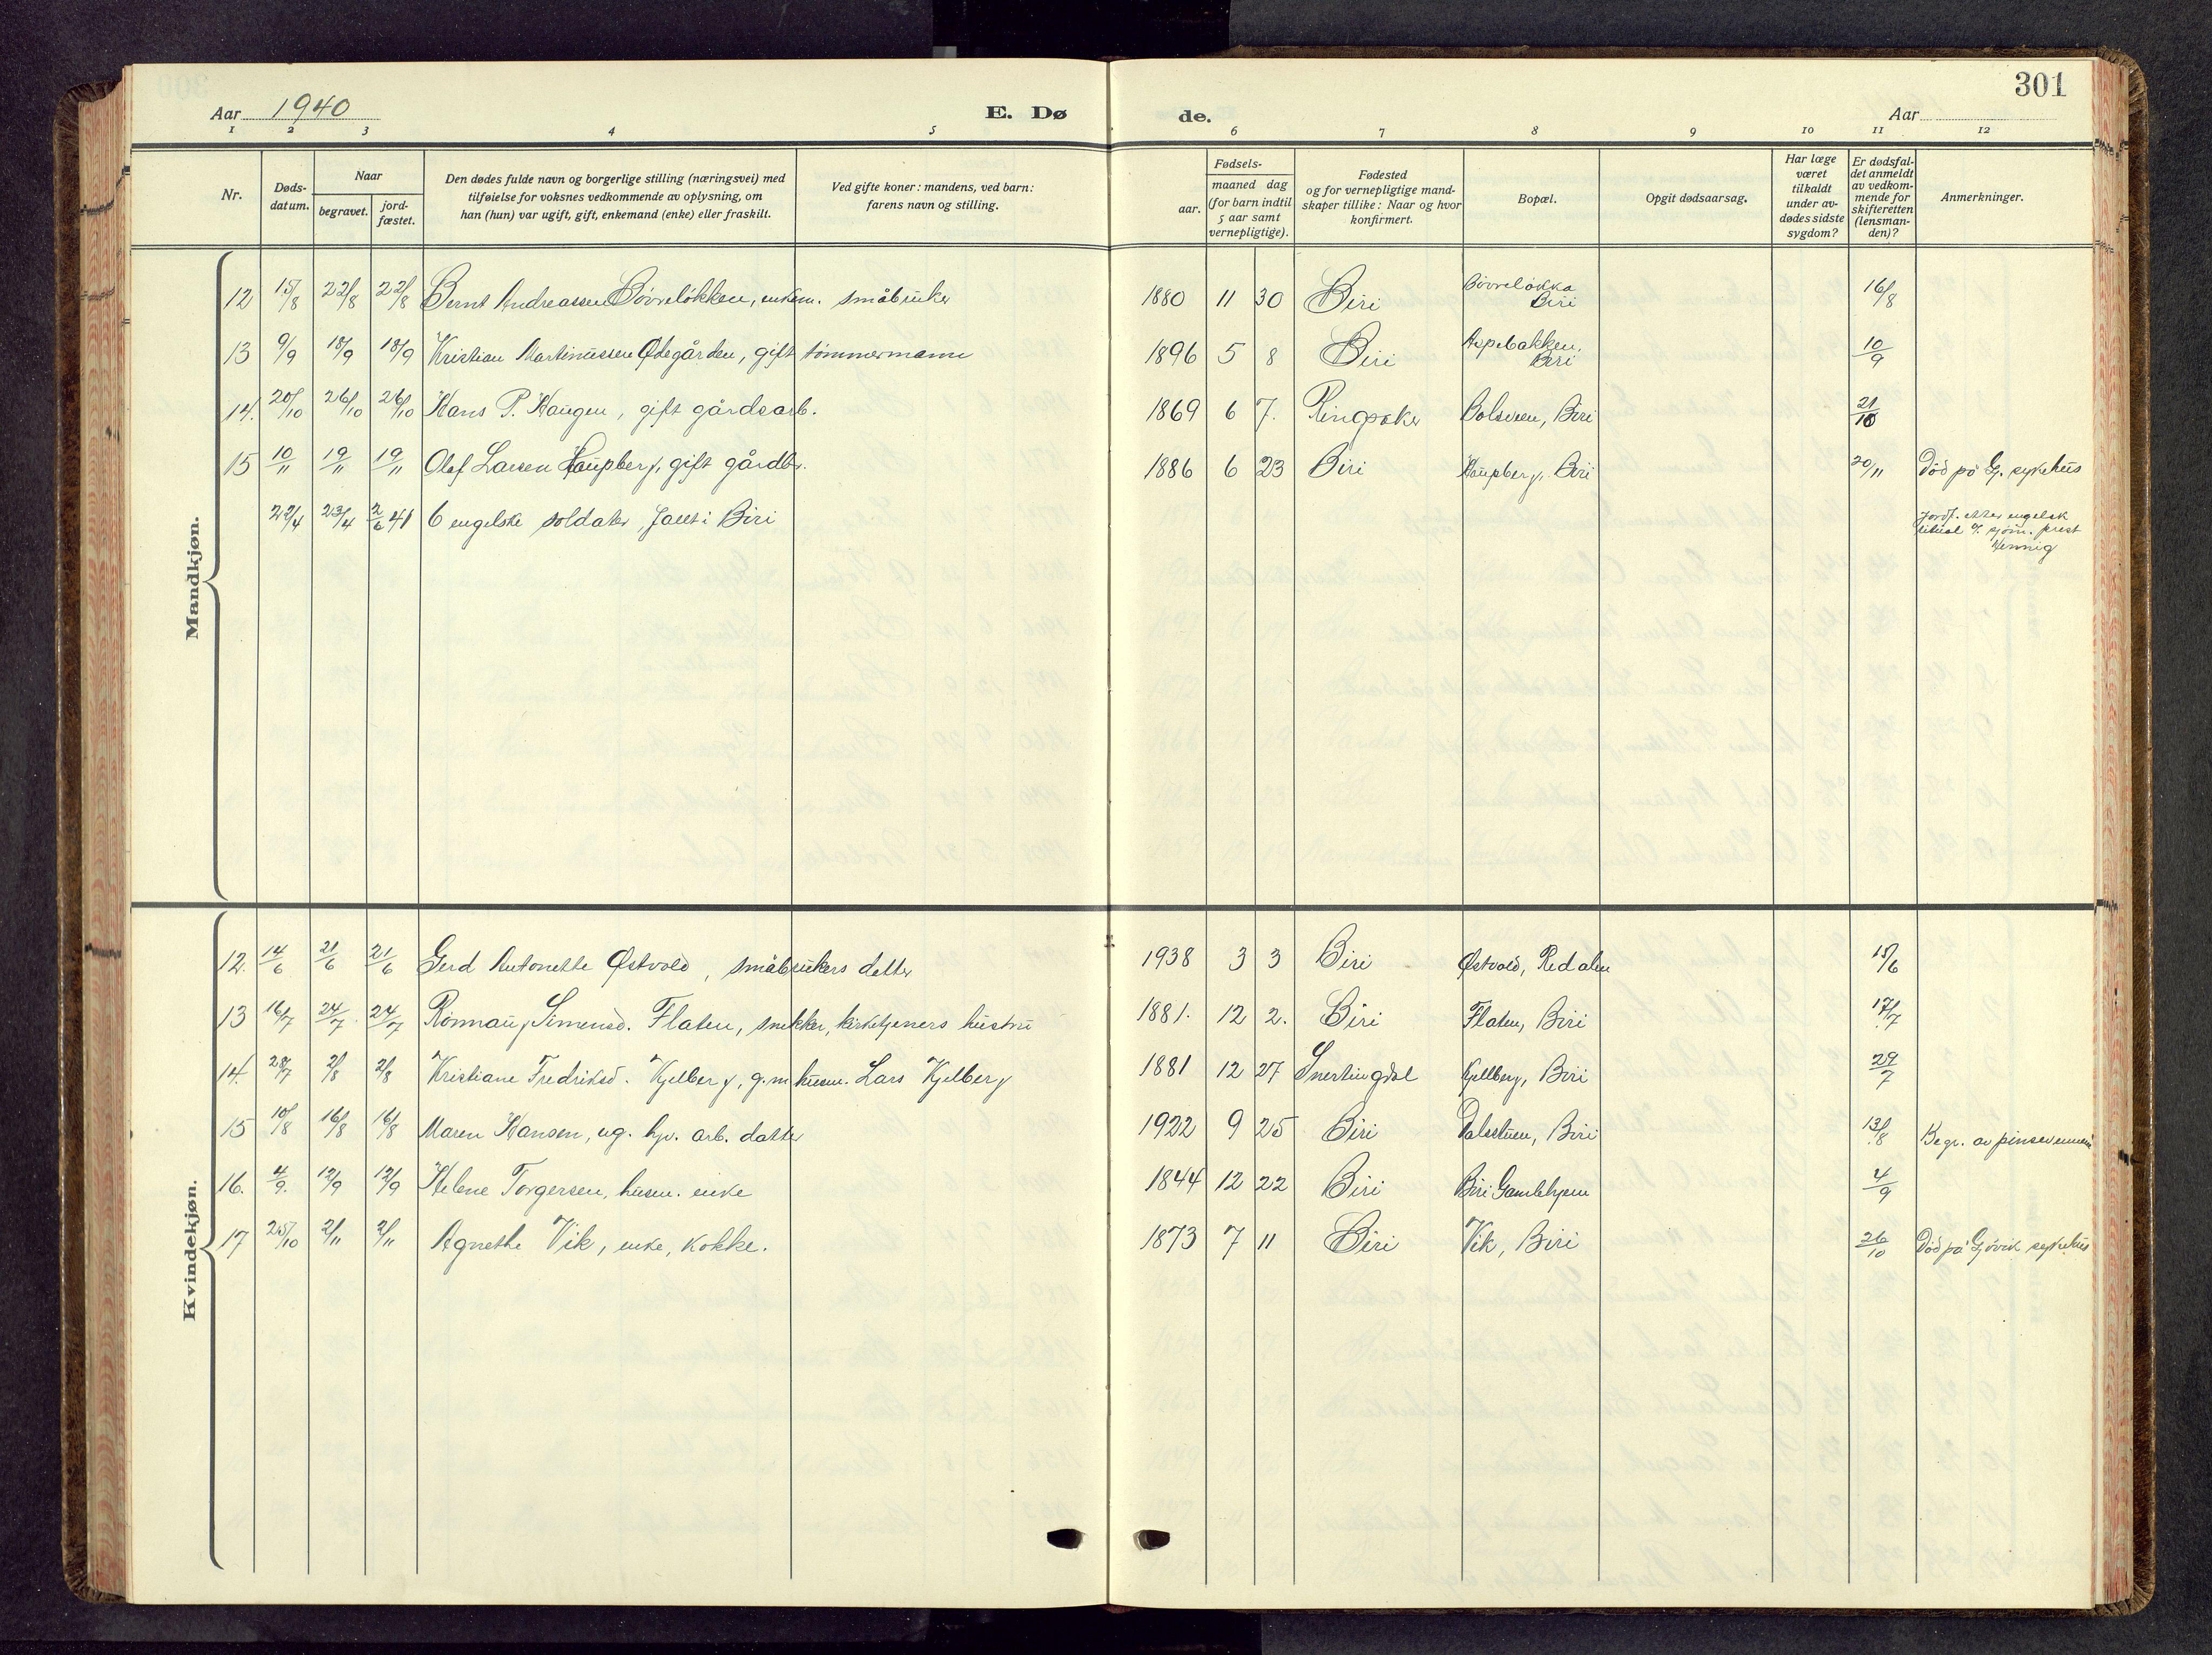 301
Aar 1940
E. Dø
de.
Aar
1 2 3 4 5 6 7 8 9 10 11 12
Nr.
Døds-
datum.
Naar
begravet.
jord-
fæstet.
Den dødes fulde navn og borgerlige stilling (næringsvei) med
tilføielse for voksnes vedkommende av oplysning, om
han (hun) var ugift, gift, enkemand (enke) eller fraskilt.
Ved gifte koner: mandens, ved barn:
farens navn og stilling.
Fødsels-
aar.
maaned dag
(for barn indtil
5 aar samt
vernepligtige).
Fødested
og for vernepligtige mand-
skaper tillike: Naar og hvor
konfirmert.
Bopæl.
Opgit dødsaarsag.
Har læge
været
tilkaldt
under av-
dødes sidste
sygdom?
Er dødsfal-
det anmeldt
av vedkom-
mende for
skifteretten
(lensman-
den)?
Anmerkninger.
Mandkjøn.
12 15/8 22/8 22/8 Bernt Andreassen Bövrelökken, enkem. småbruker 1880 11 30 Biri Bövrelökka Biri 16/8
13 9/9 18/9 18/9 Kristian Martinussen Ødegården, gift tömmermann 1896 5 8 Biri Aspebakken, Biri 10/9
14. 20/10 26/10 26/10 Hans P. Haugen, gift gårdsarb. 1869 6 7. Ringsaker Bolstuen, Biri 21/10
15 10/11 19/11 19/11 Olaf Larsen Haupberg, gift gårdbr. 1886 6 23 Biri Haupberg, Biri 20/11 Död på G. sykehus
22/4 23/4 2/6 41 6 engelske soldater, falt i Biri Jordf. etter engelsk
ritual v. sjöm. prest
Hennig
Kvindekjøn.
12. 14/6 21/6 21/6 Gerd Antonette Østvold, småbrukers datter 1938 3 3 Biri Østvold, Redalen 15/6
13 16/7 24/7 24/7 Rönnaug Simensd. Flaten, snekker, kirketjeners hustru 1881. 12 2. Biri Flaten, Biri 17/7
14. 28/7 2/8 2/8 Kristiane Fredriksd. Kjelberg, g.m. husm. Lars Kjelberg 1881 12 27 Snertingdal Kjellberg, Biri 29/7
15 10/8 16/8 16/8 Maren Hansen, ug. hjv. arb. datter 1922 9 25 Biri Dalstuen, Biri 13/8 Begr. av pinsevennene
16. 4/9. 12/9 12/9 Helene Torgersen, husm. enke 1844 12 22 Biri Biri Gamlehjem 4/9
17 25/10 2/11 2/11 Agnethe Vik, enke, kokke. 1873 7 11 Biri Vik, Biri 26/10 Död på Gjövik sykehus